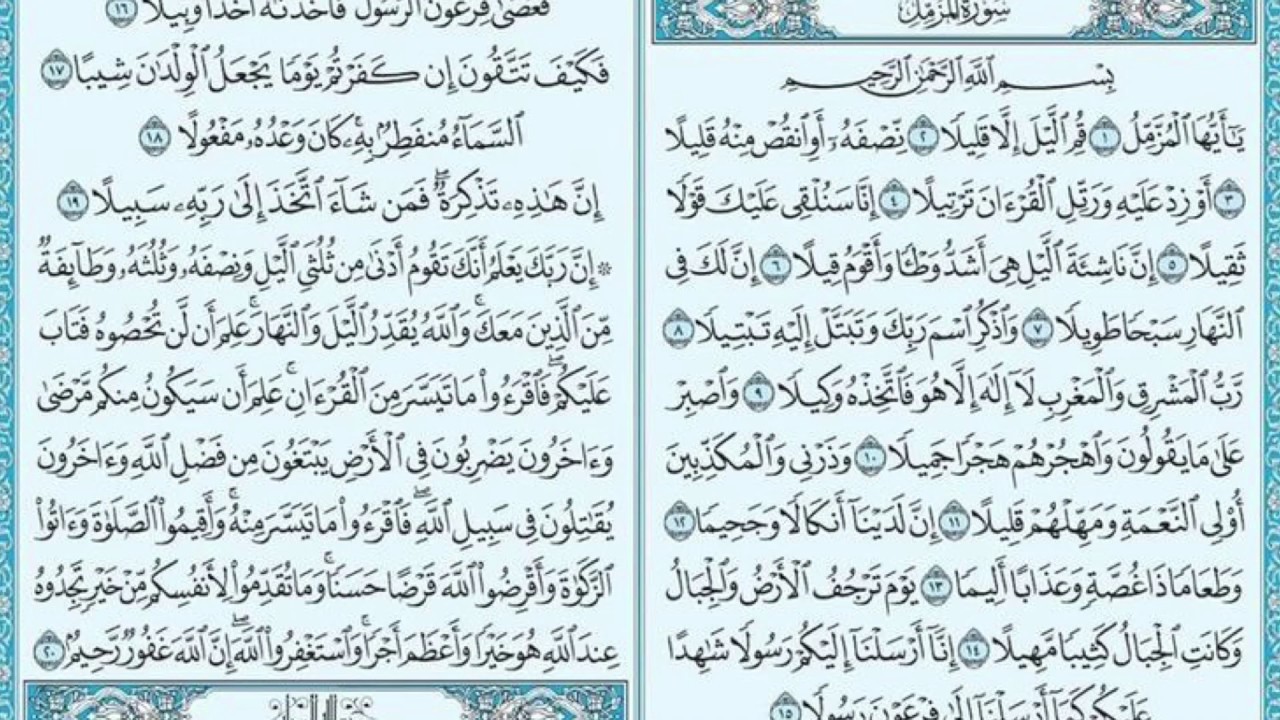 سُورَةُ المُزَّمِّلِ
بِسْمِ ٱللَّهِ ٱلرَّحْمَٰنِ ٱلرَّحِيمِ
يَٰٓأَيُّهَا ٱلْمُزَّمِّلُ ١ قُمِ ٱلَّيْلَ إِلَّا قَلِيلًا ٢ نِّصْفَهُۥٓ أَوِ ٱنقُصْ مِنْهُ قَلِيلًا
٣ أَوْ زِدْ عَلَيْهِ وَرَتِّلِ ٱلْقُرْءَانَ تَرْتِيلًا ٤ إِنَّا سَنُلْقِى عَلَيْكَ قَوْلًا
ثَقِيلًا ٥ إِنَّ نَاشِئَةَ ٱلَّيْلِ هِىَ أَشَدُّ وَطْـًٔا وَأَقْوَمُ قِيلًا ٦ إِنَّ لَكَ فِى
ٱلنَّهَارِ سَبْحًا طَوِيلًا ٧ وَٱذْكُرِ ٱسْمَ رَبِّكَ وَتَبَتَّلْ إِلَيْهِ تَبْتِيلًا ٨
رَّبُّ ٱلْمَشْرِقِ وَٱلْمَغْرِبِ لَآ إِلَٰهَ إِلَّا هُوَ فَٱتَّخِذْهُ وَكِيلًا ٩ وَٱصْبِرْ
عَلَىٰ مَا يَقُولُونَ وَٱهْجُرْهُمْ هَجْرًا جَمِيلًا ١٠ وَذَرْنِى وَٱلْمُكَذِّبِينَ
أُو۟لِى ٱلنَّعْمَةِ وَمَهِّلْهُمْ قَلِيلًا ١١ إِنَّ لَدَيْنَآ أَنكَالًا وَجَحِيمًا ١٢
وَطَعَامًا ذَا غُصَّةٍ وَعَذَابًا أَلِيمًا ١٣ يَوْمَ تَرْجُفُ ٱلْأَرْضُ وَٱلْجِبَالُ
وَكَانَتِ ٱلْجِبَالُ كَثِيبًا مَّهِيلًا ١٤ إِنَّآ أَرْسَلْنَآ إِلَيْكُمْ رَسُولًا شَٰهِدًا
عَلَيْكُمْ كَمَآ أَرْسَلْنَآ إِلَىٰ فِرْعَوْنَ رَسُولًا ١٥
فَعَصَىٰ فِرْعَوْنُ ٱلرَّسُولَ فَأَخَذْنَٰهُ أَخْذًا وَبِيلًا ١٦
فَكَيْفَ تَتَّقُونَ إِن كَفَرْتُمْ يَوْمًا يَجْعَلُ ٱلْوِلْدَٰنَ شِيبًا ١٧
ٱلسَّمَآءُ مُنفَطِرٌۢ بِهِۦ كَانَ وَعْدُهُۥ مَفْعُولًا ١٨
إِنَّ هَٰذِهِۦ تَذْكِرَةٌ ۖ فَمَن شَآءَ ٱتَّخَذَ إِلَىٰ رَبِّهِۦ سَبِيلًا ١٩
۞ إِنَّ رَبَّكَ يَعْلَمُ أَنَّكَ تَقُومُ أَدْنَىٰ مِن ثُلُثَىِ ٱلَّيْلِ وَنِصْفَهُۥ وَثُلُثَهُۥ وَطَآئِفَةٌ
مِّنَ ٱلَّذِينَ مَعَكَ ۚ وَٱللَّهُ يُقَدِّرُ ٱلَّيْلَ وَٱلنَّهَارَ ۚ عَلِمَ أَن لَّن تُحْصُوهُ فَتَابَ
عَلَيْكُمْ ۖ فَٱقْرَءُوا۟ مَا تَيَسَّرَ مِنَ ٱلْقُرْءَانِ ۚ عَلِمَ أَن سَيَكُونُ مِنكُم مَّرْضَىٰ
وَءَاخَرُونَ يَضْرِبُونَ فِى ٱلْأَرْضِ يَبْتَغُونَ مِن فَضْلِ ٱللَّهِ وَءَاخَرُونَ
يُقَٰتِلُونَ فِى سَبِيلِ ٱللَّهِ ۖ فَٱقْرَءُوا۟ مَا تَيَسَّرَ مِنْهُ ۚ وَأَقِيمُوا۟ ٱلصَّلَوٰةَ وَءَاتُوا۟
ٱلزَّكَوٰةَ وَأَقْرِضُوا۟ ٱللَّهَ قَرْضًا حَسَنًا ۚ وَمَا تُقَدِّمُوا۟ لِأَنفُسِكُم مِّنْ خَيْرٍ تَجِدُوهُ
عِندَ ٱللَّهِ هُوَ خَيْرًا وَأَعْظَمَ أَجْرًا ۚ وَٱسْتَغْفِرُوا۟ ٱللَّهَ ۖ إِنَّ ٱللَّهَ غَفُورٌ رَّحِيمٌۢ ٢٠